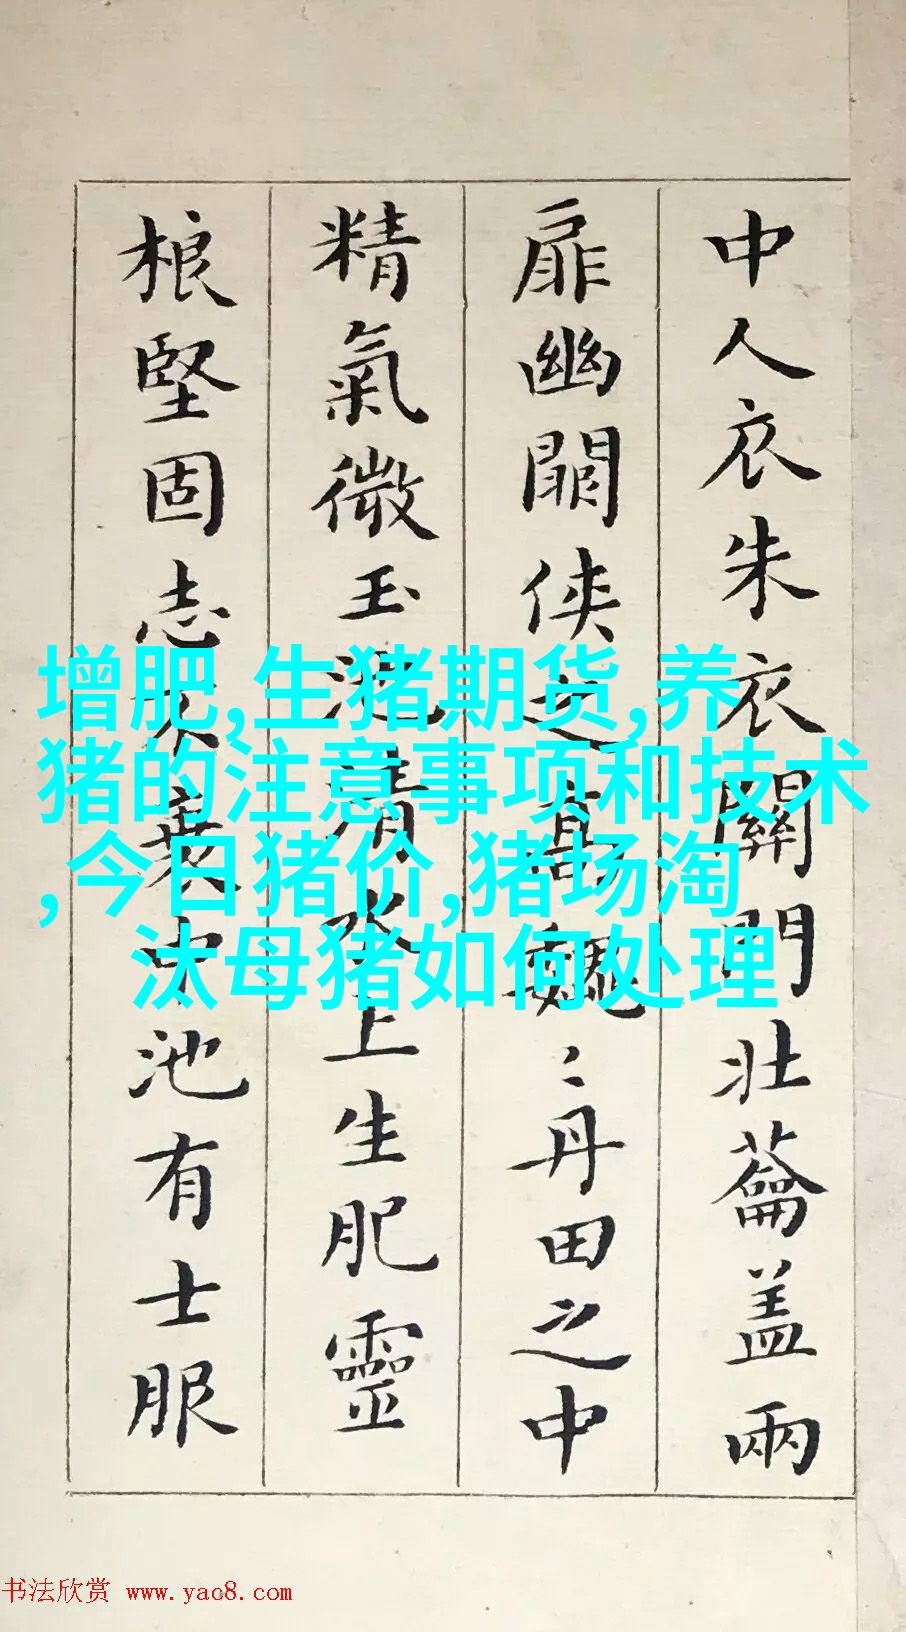 中人衣朱衣關門壯蘥盖兩
扉幽闕侠之高巍〻丹田之中
精氣微玉池清水上生肥靈
根堅固志不衰中池有士服
增肥,生猪期货,养
猪的注意事项和技术
,今日猪价,猪场淘
汰母猪如何处理
书法欣赏 www.yac8.com